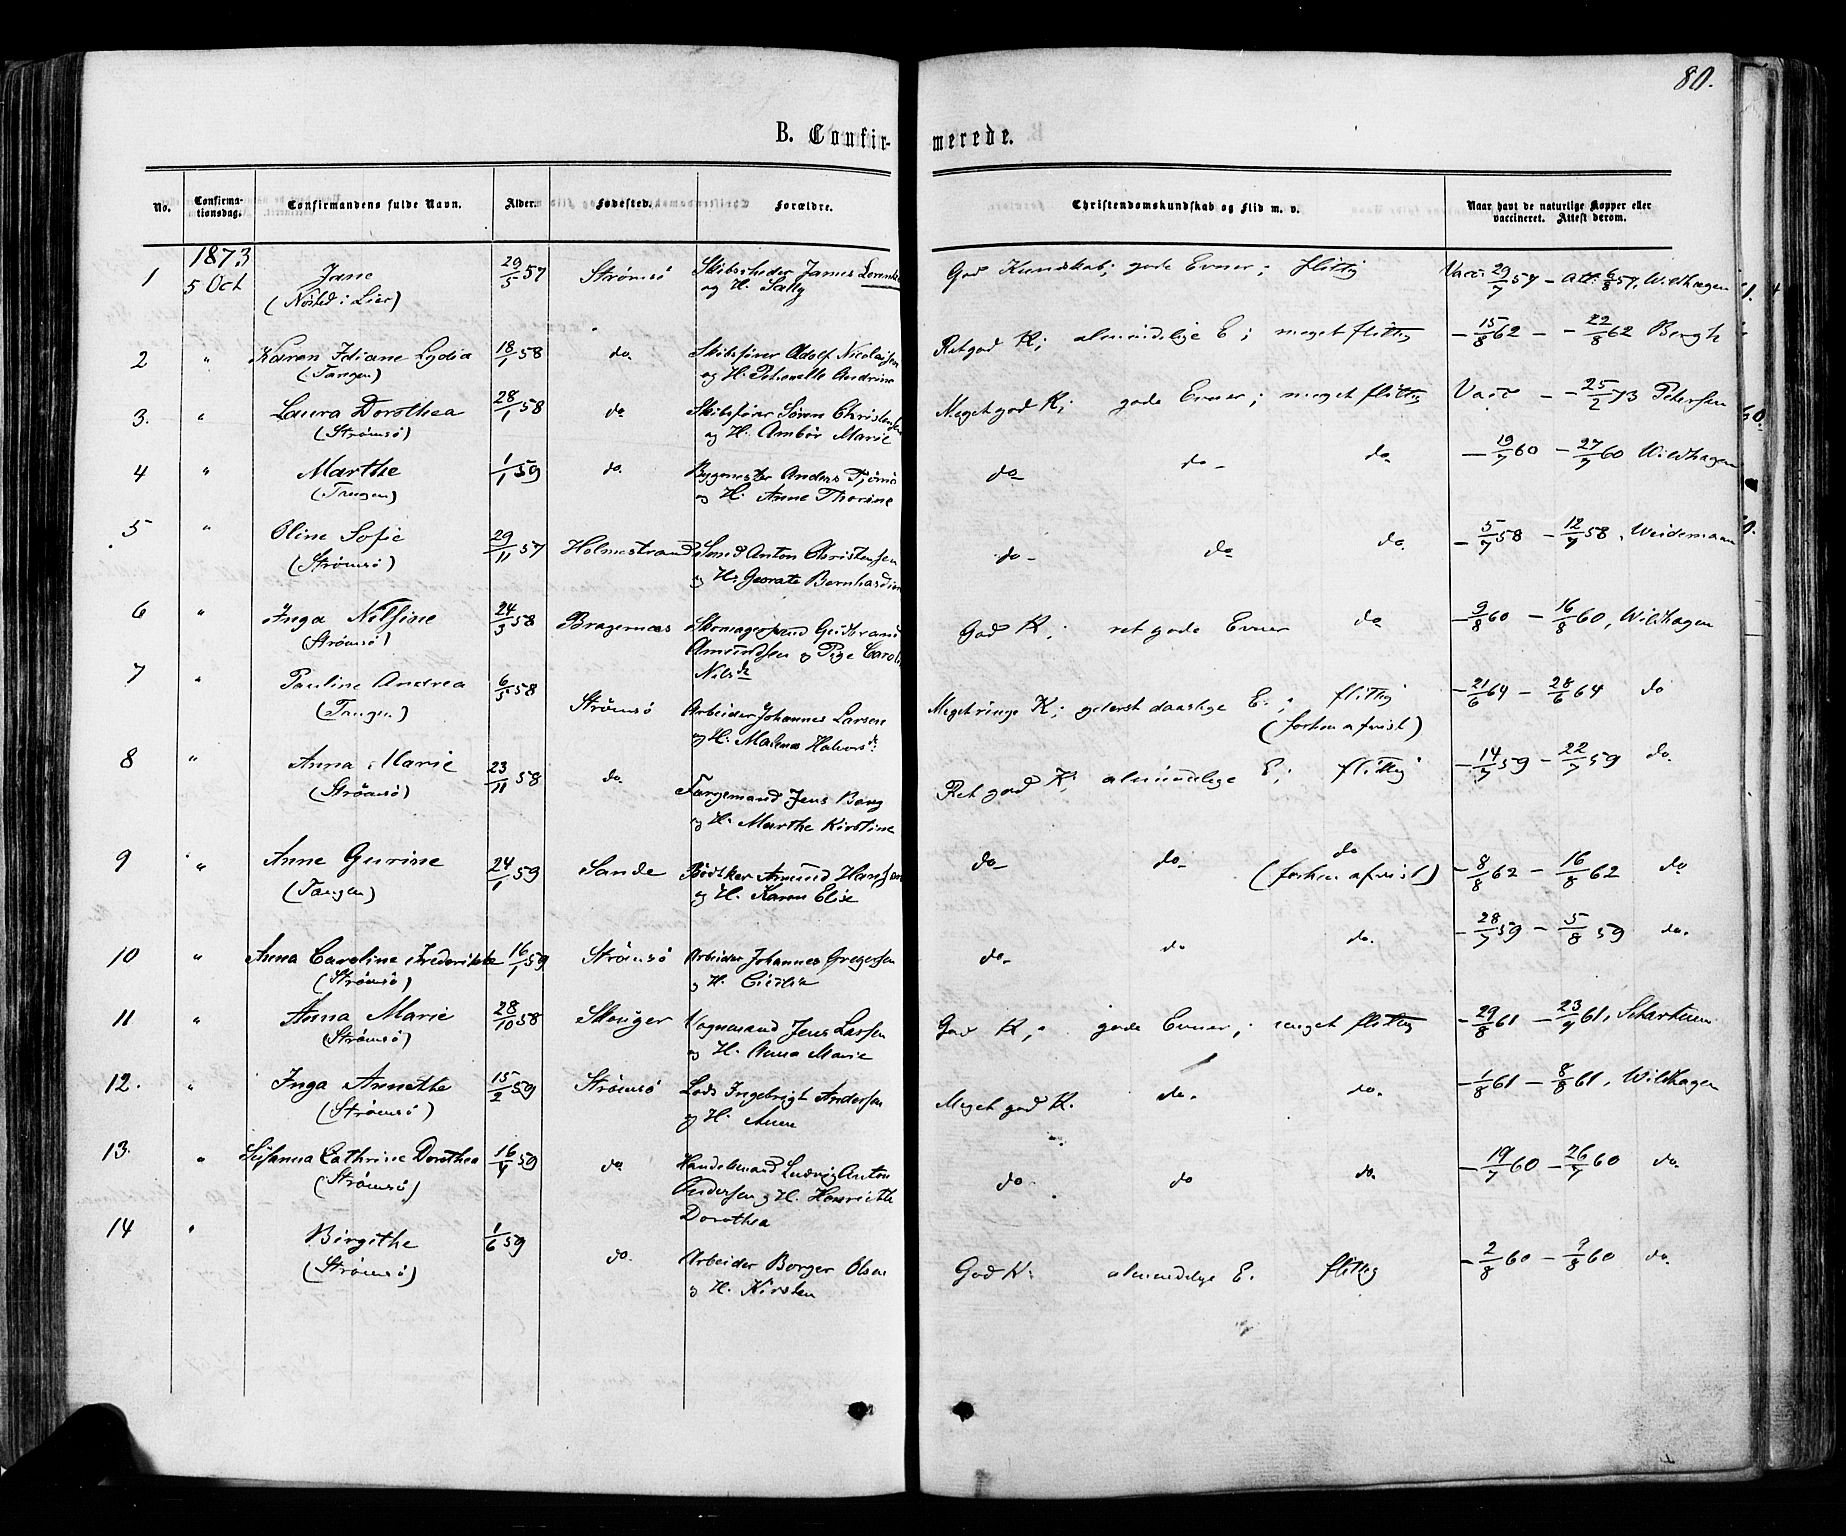 80.
B. Confirmerede.
No. Confirmationsdag. Confirmandens fulde Navn. Alder. Fødested. Forældre. Christendomskundskab og Flid m. v. Naar havt de naturlige Kopper eller vaccineret. Attest derom.
1873
1 5 Oct Jane 29/5 57 Strømsø Skibsrheder James God Kundskab; gode Evner; flittig Vacc 29/7 57 – Att: 6/8 57, Wildhagen
(Nøsted i Lier) og H. Sally
2 " Karen Idiane Lydia 18/1 58 do. Skibsfører Adolf Nicolaisen Ret god K; almindelige E; meget flittig – 15/8 62 – – 22/8 62 Bergh
(Tangen) og H. Petronelle Andrine
3. " Laura Dorothea 28/1 58 do Skibsfører Søren Christensen Meget god K; gode Evner; meget flittig Vacc – – 25/2 73 Petersen
(Strømsø) og H. Ambör Marie
4 " Marthe 1/1 59 do. Bygmester Anders Tjømø do do – do – 19/7 60 – 27/7 60 Wildhagen
(Tangen) og H. Anne Thorine
5 " Oline Sofie 29/11 57 Holmestrand Smed Anton Christensen do – do do. – 5/7 58 – 12/7 58, Weidemann
(Strømsø) og H. Georate Bernhardine
6 " Inga Nilsine 24/3 58 Bragernæs Skomagersvend Gudbrand God K; ret gode Evner do – 9/8 60 – 16/8 60, Wildhagen
(Strømsø) Amundsen og Pige Carol.
Nilsd.
7 " Pauline Andrea 6/5 58 Strømsø Arbeider Johannes Larsen Meget ringe K; yderst daarlige E.; flittig – 21/6 64 – 28/6 64 do
(Tangen) og H. Malena Halvorsd: (forhen afvist)
8 " Anna Marie 23/11 58 do. Færgemand Jens Bang Ret god K; almindelige E; flittig – 14/7 59 – 22/7 59 do.
(Strømsø) og H. Marthe Kirstine
9 " Anne Gurine 24/1 59 Sande Bödtker Amund Hansen do – do – do – 8/8 62 – 16/8 62 do
(Tangen) og H. Karen Elise (forhen afvist)
10 " Anna Caroline Frederikke 16/1 59 Strømsø Arbeider Johannes Gregersen do – do do. – 28/7 59 – 5/8 59 do.
(Strømsø) og H. Cicilie
11 " Anna Marie 28/10 58 Skouger Vognmand Jens Larsen God K; gode Evner; meget flittig – 29/8 61 – 23/9 61, Schartum
(Strømsø) og H. Anna Marie
12. " Inga Annethe 15/2 59 Strømsø Lods Ingebrigt Andersen Meget god K. do. do. – 1/8 61 – 8/8 61, Wildhagen
(Strømsø) og H. Anne
13. " Susanna Cathrine Dorothea 16/4 59 do Handelsmand Ludvig Anton do do do. – 19/7 60 – 26/7 60 do.
(Strømsø) Andersen og H. Henriette
Dorothea
14 " Birgithe 1/6 59 do. Arbeider Borger Olsen God K: almindelige E. flittig – 2/8 60 – 9/8 60 do.
(Strømsø) og H. Kirsten